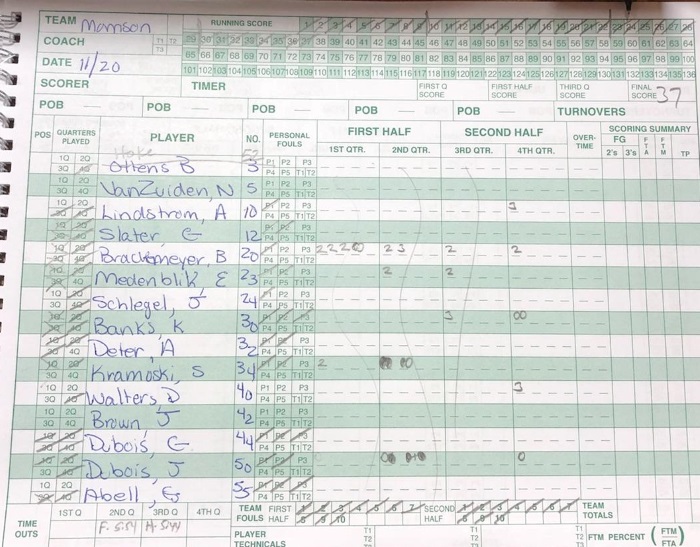 TEAM Momson RUNNING SCORE 1 2 3 4 5 6 7 8 9 10 11 12 13 14 15 16 17 18 19 20 21 22 23 24 25 26 27 28
COACH T1 T2 T3 29 30 31 32 33 34 35 36 37 38 39 40 41 42 43 44 45 46 47 48 49 50 51 52 53 54 55 56 57 58 59 60 61 62 63 64
65 66 67 68 69 70 71 72 73 74 75 76 77 78 79 80 81 82 83 84 85 86 87 88 89 90 91 92 93 94 95 96 97 98 99 100
DATE 11/20 101 102 103 104 105 106 107 108 109 110 111 112 113 114 115 116 117 118 119 120 121 122 123 124 125 126 127 128 129 130 131 132 133 134 135 136
SCORER TIMER FIRST Q SCORE FIRST HALF SCORE THIRD Q SCORE FINAL SCORE 37
POB POB POB POB POB TURNOVERS
POS QUARTERS PLAYED PLAYER NO. PERSONAL FOULS FIRST HALF SECOND HALF OVER-TIME SCORING SUMMARY
1ST QTR. 2ND QTR. 3RD QTR. 4TH QTR. FG 2's 3's FTA FTM TP
1Q 2Q 3Q 4Q Ottens B 3 P1 P2 P3 P4 P5 T1 T2
1Q 2Q 3Q 4Q VanZuiden, N 5 P1 P2 P3 P4 P5 T1 T2
1Q 2Q 3Q 4Q Lindstrom, A 10 P1 P2 P3 P4 P5 T1 T2 3
1Q 2Q 3Q 4Q Slater, G 12 P1 P2 P3 P4 P5 T1 T2
1Q 2Q 3Q 4Q Brackemeyer, B 20 P1 P2 P3 P4 P5 T1 T2 2 2 2 0 2 3 2 2
1Q 2Q 3Q 4Q Medenblik, E 23 P1 P2 P3 P4 P5 T1 T2 2 2
1Q 2Q 3Q 4Q Schlegel, J 24 P1 P2 P3 P4 P5 T1 T2
1Q 2Q 3Q 4Q Banks, K 30 P1 P2 P3 P4 P5 T1 T2 3 00
1Q 2Q 3Q 4Q Deter, A 32 P1 P2 P3 P4 P5 T1 T2
1Q 2Q 3Q 4Q Kramoski, S 34 P1 P2 P3 P4 P5 T1 T2 2
1Q 2Q 3Q 4Q Walters D 40 P1 P2 P3 P4 P5 T1 T2 3
1Q 2Q 3Q 4Q Brown, J 42 P1 P2 P3 P4 P5 T1 T2
1Q 2Q 3Q 4Q Dubois, G 44 P1 P2 P3 P4 P5 T1 T2
1Q 2Q 3Q 4Q Dubois, J 50 P1 P2 P3 P4 P5 T1 T2 0
1Q 2Q 3Q 4Q Abell, G 55 P1 P2 P3 P4 P5 T1 T2
TIME OUTS 1ST Q 2ND Q 3RD Q 4TH Q TEAM FOULS FIRST HALF 1 2 3 4 5 6 7 8 9 10 SECOND HALF 1 2 3 4 5 6 7 8 9 10 TEAM TOTALS
PLAYER TECHNICALS T1 T2 T3 T1 T2 T3 T1 T2 T3 FTM PERCENT (FTM FTA)